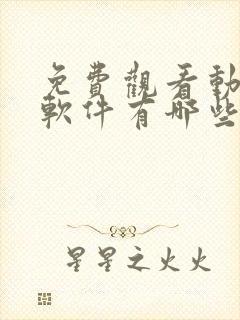 免費觀看動
軟件有哪些
星星之火火